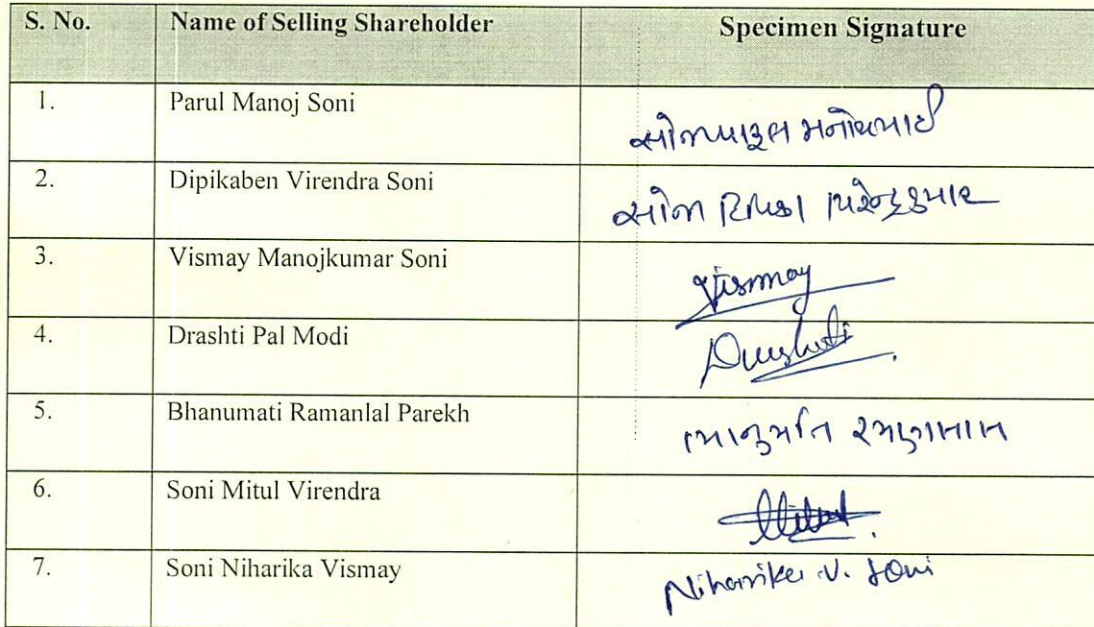 S. No. Name of Selling Shareholder Specimen Signature
1. Parul Manoj Soni સોની પારૂલ મનોજભાઈ
2. Dipikaben Virendra Soni સોની દિપિકા વિરેન્દ્રકુમાર
3. Vismay Manojkumar Soni Vismay
4. Drashti Pal Modi Drashti
5. Bhanumati Ramanlal Parekh ભાનુમતિ રમણલાલ
6. Soni Mitul Virendra Mitul
7. Soni Niharika Vismay Niharika V. Soni